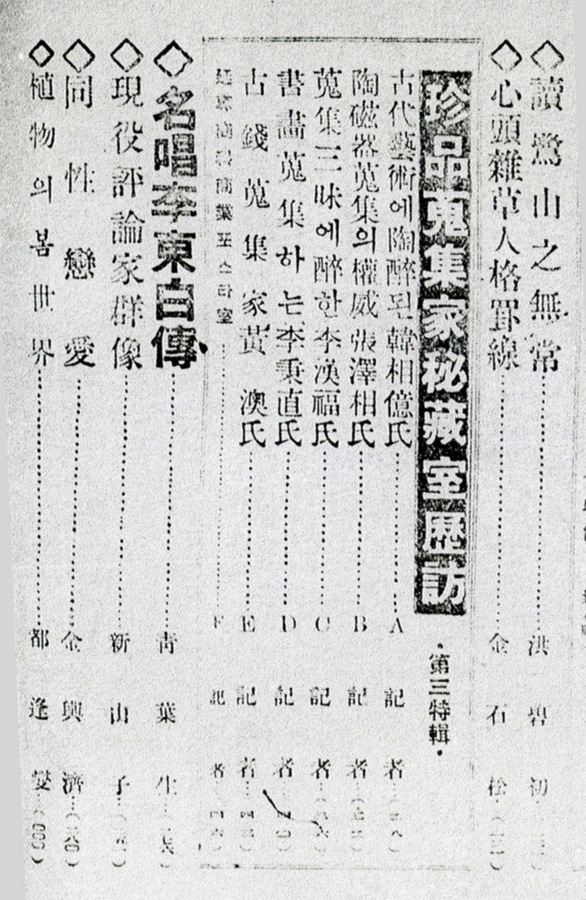 ◇讀鷺山之無常 洪碧初
◇心頭雜草人格罫線 金石松
珍品蒐集家秘藏室歷訪 ・第三特輯・
古代藝術에陶醉된韓相億氏 A記者
陶磁器蒐集의權威張澤相氏 B記者
蒐集三昧에醉한李漢福氏 C記者
書畵蒐集하는李秉直氏 D記者
古錢蒐集家黃澳氏 E記者
商業포스타室 F記者
◇名唱李東白傳 靑葉生
◇現役評論家群像 新山子
◇同性戀愛 金興濟
◇植物의봄世界 都逢燮